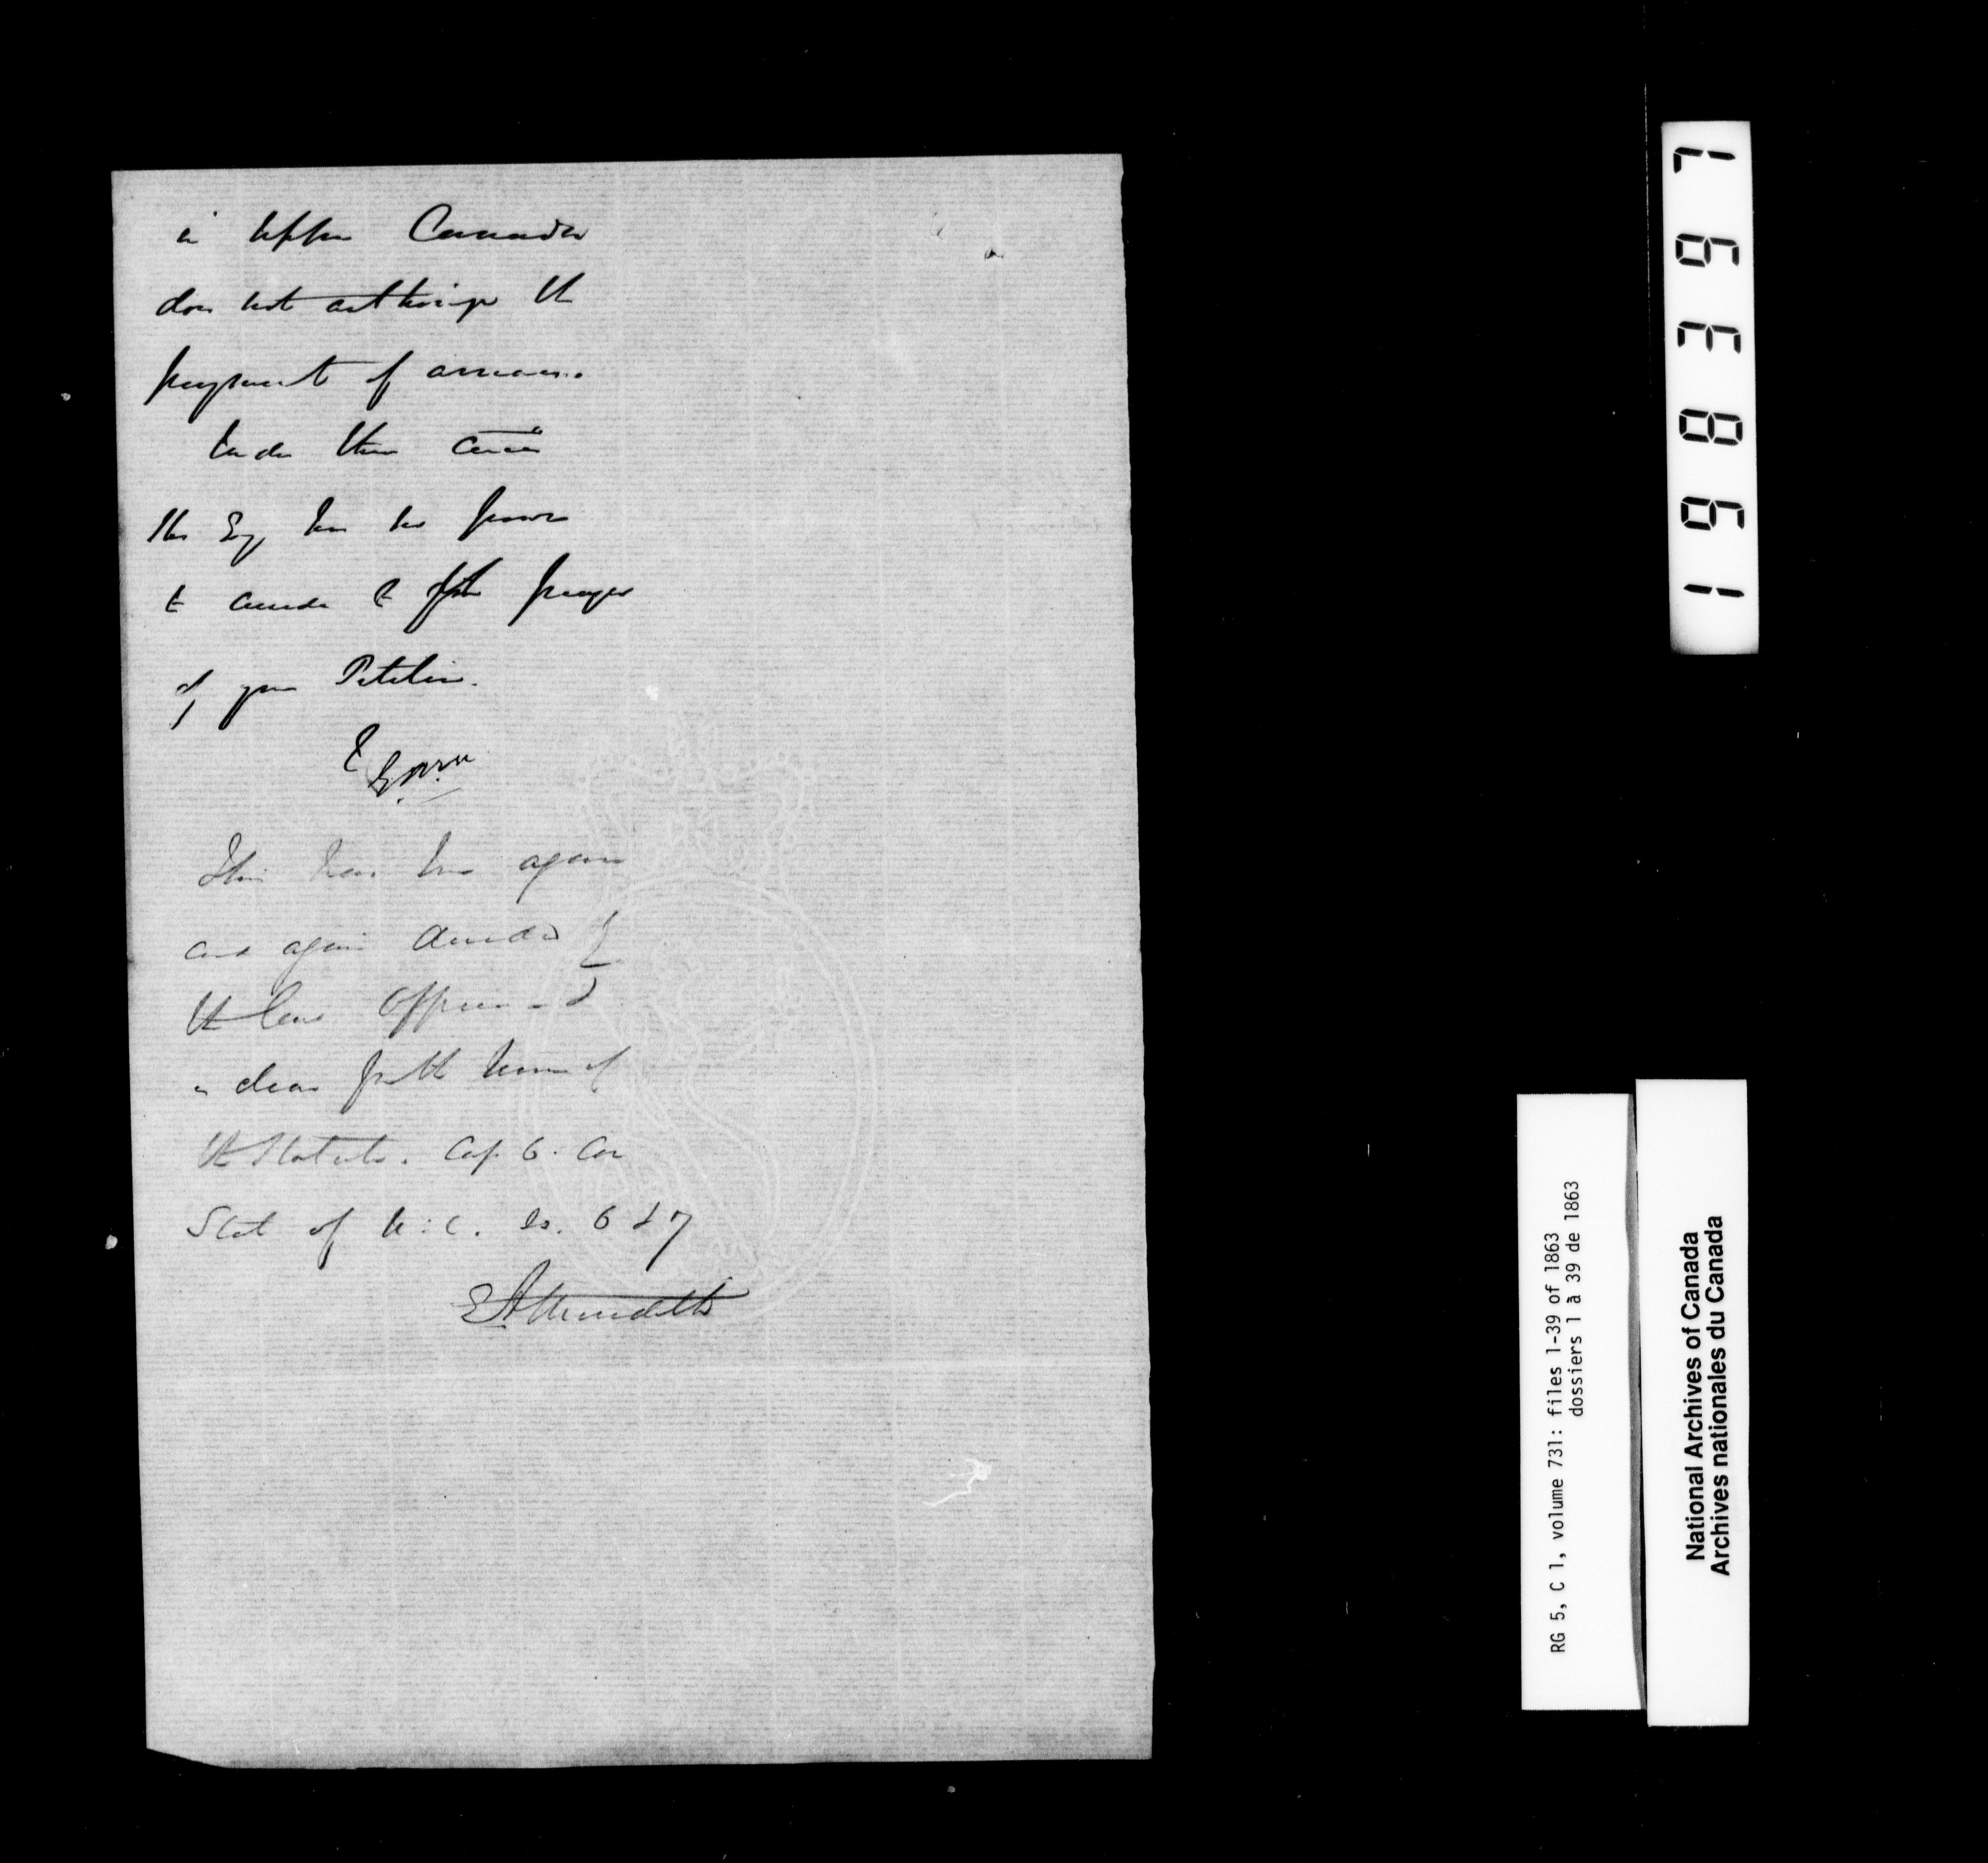 in Upper Canada
does not authorize the
payment of arrears.
Under these circes
His Exy has no power
to accede to the prayer
of your Petition.
This has been again
and again decided by
the Law Officers and
is clear from the terms of
the Statute. Cap 6. Con
Stat of U.C. ss. 6 & 7
EAMeredith
198397
RG 5, C 1, volume 731: files 1-39 of 1863
dossiers 1 à 39 de 1863
National Archives of Canada
Archives nationales du Canada